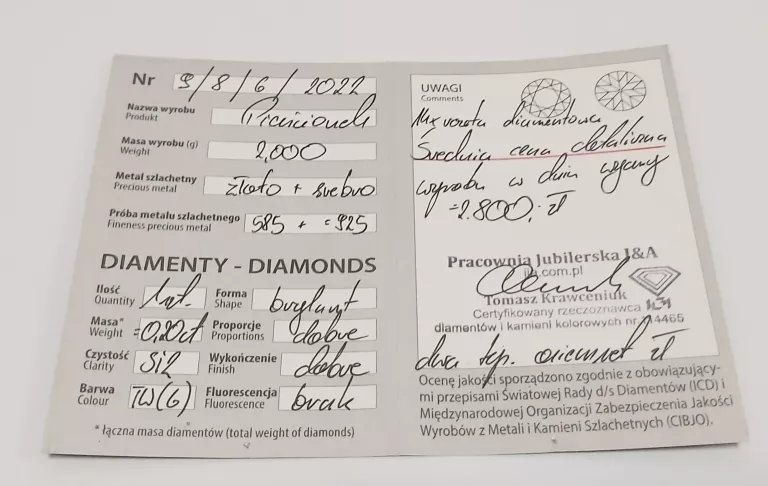 Nr 9/8/6/2022
Nazwa wyrobu Pierścionek
Produkt
Masa wyrobu (g) 2,000
Weight
Metal szlachetny złoto + srebro
Precious metal
Próba metalu szlachetnego 585 + 925
Fineness precious metal
DIAMENTY - DIAMONDS
Ilość 1szt. Forma brylant
Quantity Shape
Masa* =0,20ct Proporcje dobre
Weight Proportions
Czystość Si2 Wykończenie dobre
Clarity Finish
Barwa TW(G) Fluorescencja brak
Colour Fluorescence
* łączna masa diamentów (total weight of diamonds)
UWAGI
Comments
diamentowa
Średnia cena detaliczna
wyrobu w dniu wyceny
=2.800,- zł
Pracownia Jubilerska J&A
.com.pl
Tomasz Krawceniuk
Certyfikowany rzeczoznawca
diamentów i kamieni kolorowych nr 4465
dwa tys. osiemset zł
Ocenę jakości sporządzono zgodnie z obowiązujący-
mi przepisami Światowej Rady d/s Diamentów (ICD) i
Międzynarodowej Organizacji Zabezpieczenia Jakości
Wyrobów z Metali i Kamieni Szlachetnych (CIBJO).